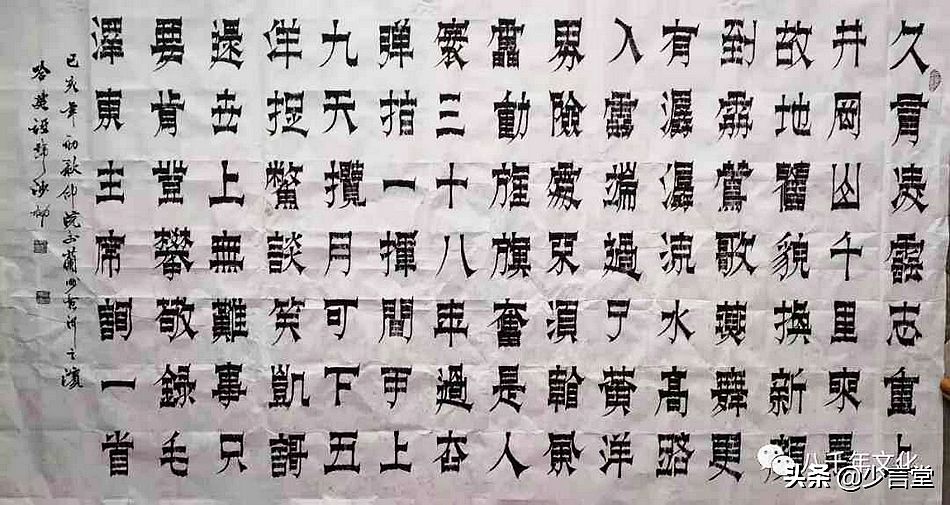 久有凌雲志重上
井岡山千里來尋
故地舊貌換新顏
到處鶯歌燕舞更
有潺潺流水高路
入雲端過了黄洋
界險處不須看風
雷動旌旗奮是人
寰三十八年過去
彈指一揮間可上
九天攬月可下五
洋捉鱉談笑凱歌
還世上無難事只
要肯登攀敬錄毛
澤東主席詞一首
己亥年初秋之濱
八千年文化
头条 @少言堂